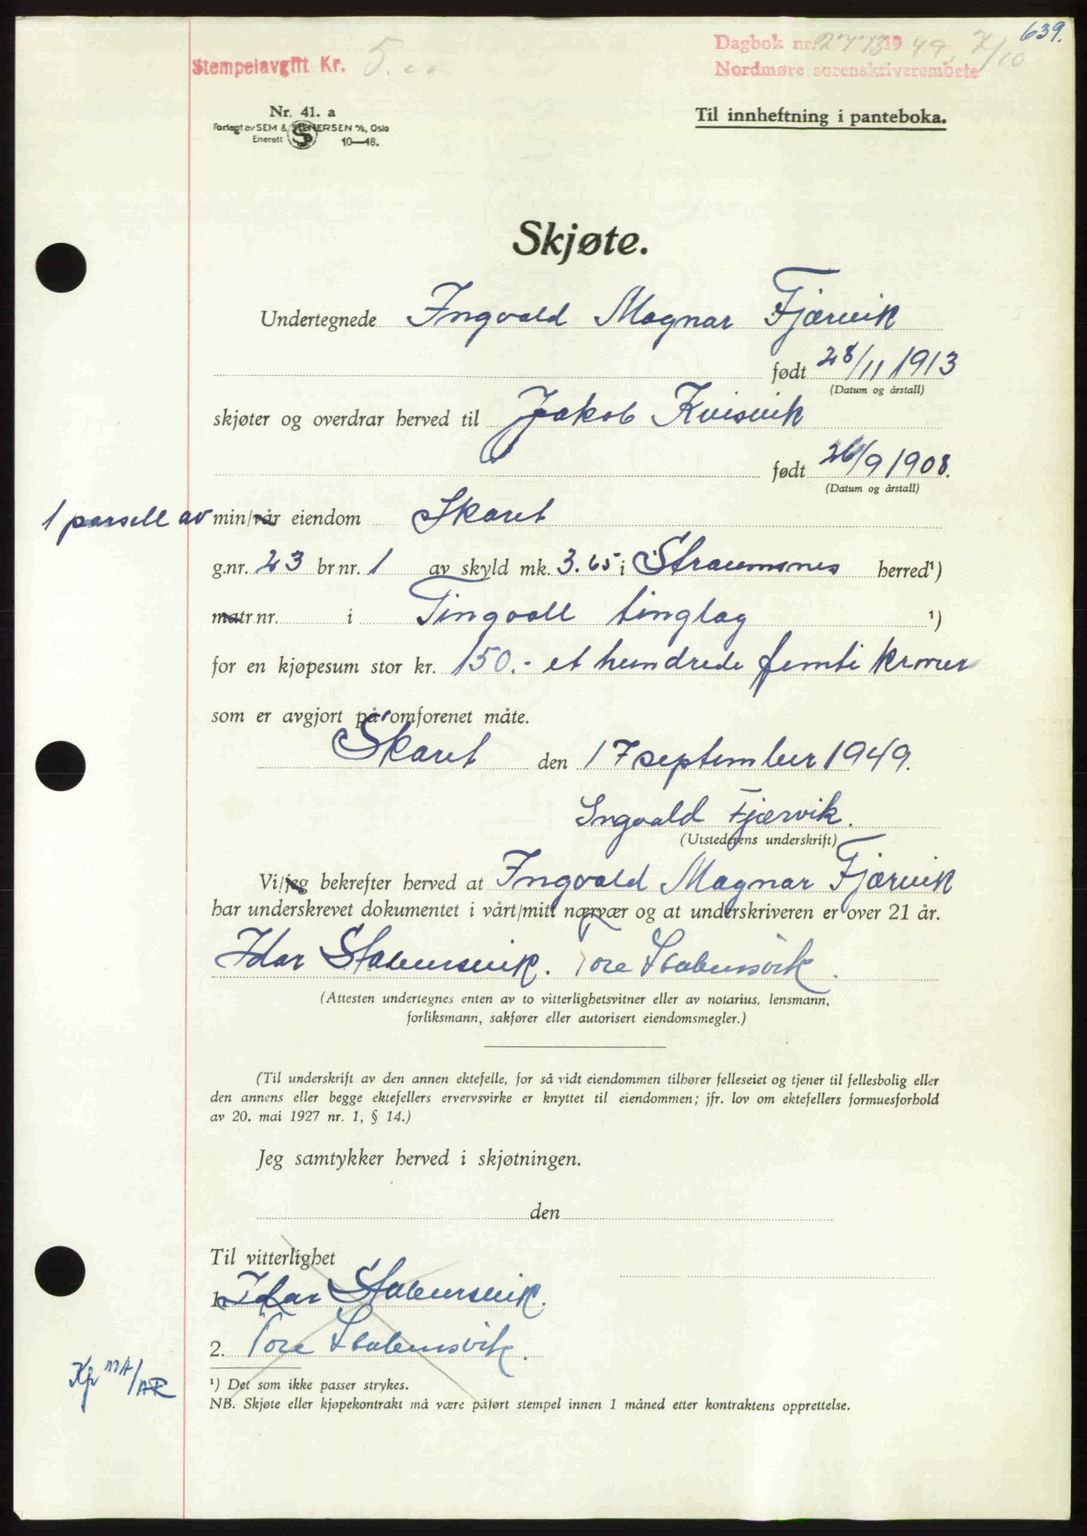 639.
Stempelavgift Kr. 5.00
Dagbok nr. 2773 1949, 7/10
Nordmøre sorenskriverembete
Nr. 41. a
Forlagt av SEM & STENERSEN A/S, Oslo
Enerett 10—48.
Til innheftning i panteboka.
Skjøte.
Undertegnede Ingvald Magnar Fjærvik
født 28/11 1913
(Datum og årstall)
skjøter og overdrar herved til Jakob Kvisvik
født 26/9 1908.
(Datum og årstall)
1 parsell av min/vår eiendom Skaret
g.nr. 23 br nr. 1 av skyld mk. 3.65 i Straumsnes herred¹)
matr nr. i Tingvoll tinglag ¹)
for en kjøpesum stor kr. 150.- et hundrede femti kroner
som er avgjort på omforenet måte.
Skaret den 17 september 1949.
Ingvald Fjærvik.
(Utstederens underskrift)
Vi/jeg bekrefter herved at Ingvald Magnar Fjærvik
har underskrevet dokumentet i vårt/mitt nærvær og at underskriveren er over 21 år.
Idar Stabursvik. Tore Stabursvik.
(Attesten undertegnes enten av to vitterlighetsvitner eller av notarius, lensmann,
forliksmann, sakfører eller autorisert eiendomsmegler.)
(Til underskrift av den annen ektefelle, for så vidt eiendommen tilhører felleseiet og tjener til fellesbolig eller
den annens eller begge ektefellers ervervsvirke er knyttet til eiendommen; jfr. lov om ektefellers formuesforhold
av 20. mai 1927 nr. 1, § 14.)
Jeg samtykker herved i skjøtningen.
den
Til vitterlighet
1. Idar Stabursvik.
2. Tore Stabursvik.
¹) Det som ikke passer strykes.
NB. Skjøte eller kjøpekontrakt må være påført stempel innen 1 måned etter kontraktens opprettelse.